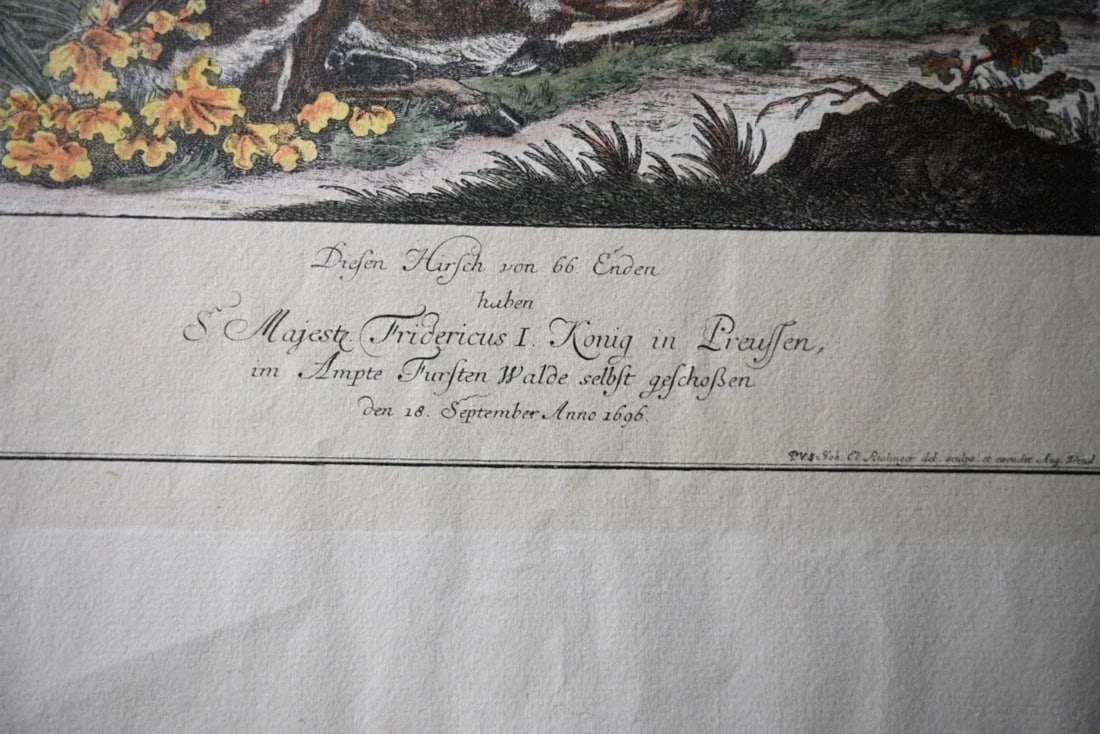 Diesen Hirsch von 66. Enden
haben
Sr. Majestz. Fridericus I. König in Preussen,
im Ampte Fürsten Walde selbst geschoßen
den 18. September Anno 1696.
P.V.S. Joh. El. Ridinger del. sculps. et excudit Aug. Vind.